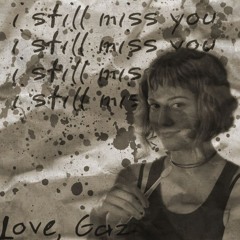 i still miss you
i still miss you
i still mis
i still mis
Love, Gaz